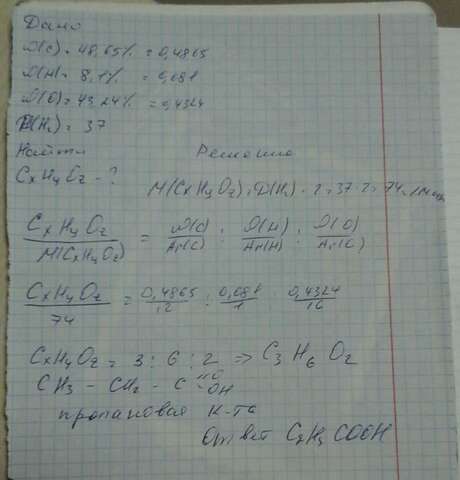 Дано
ω(C) = 48,65% = 0,4865
ω(H) = 8,1% = 0,081
ω(O) = 43,24% = 0,4324
D(H₂) = 37
Найти Решение
CxHyOz - ?
M(CxHyOz) = D(H₂) · 2 = 37 · 2 = 74 г/моль
CxHyOz / M(CxHyOz) = ω(C)/Ar(C) : ω(H)/Ar(H) : ω(O)/Ar(O)
CxHyOz / 74 = 0,4865/12 : 0,081/1 : 0,4324/16
CxHyOz = 3 : 6 : 2 => C₃H₆O₂
CH₃ - CH₂ - C =O -OH
пропановая к-та
Ответ C₂H₅COOH